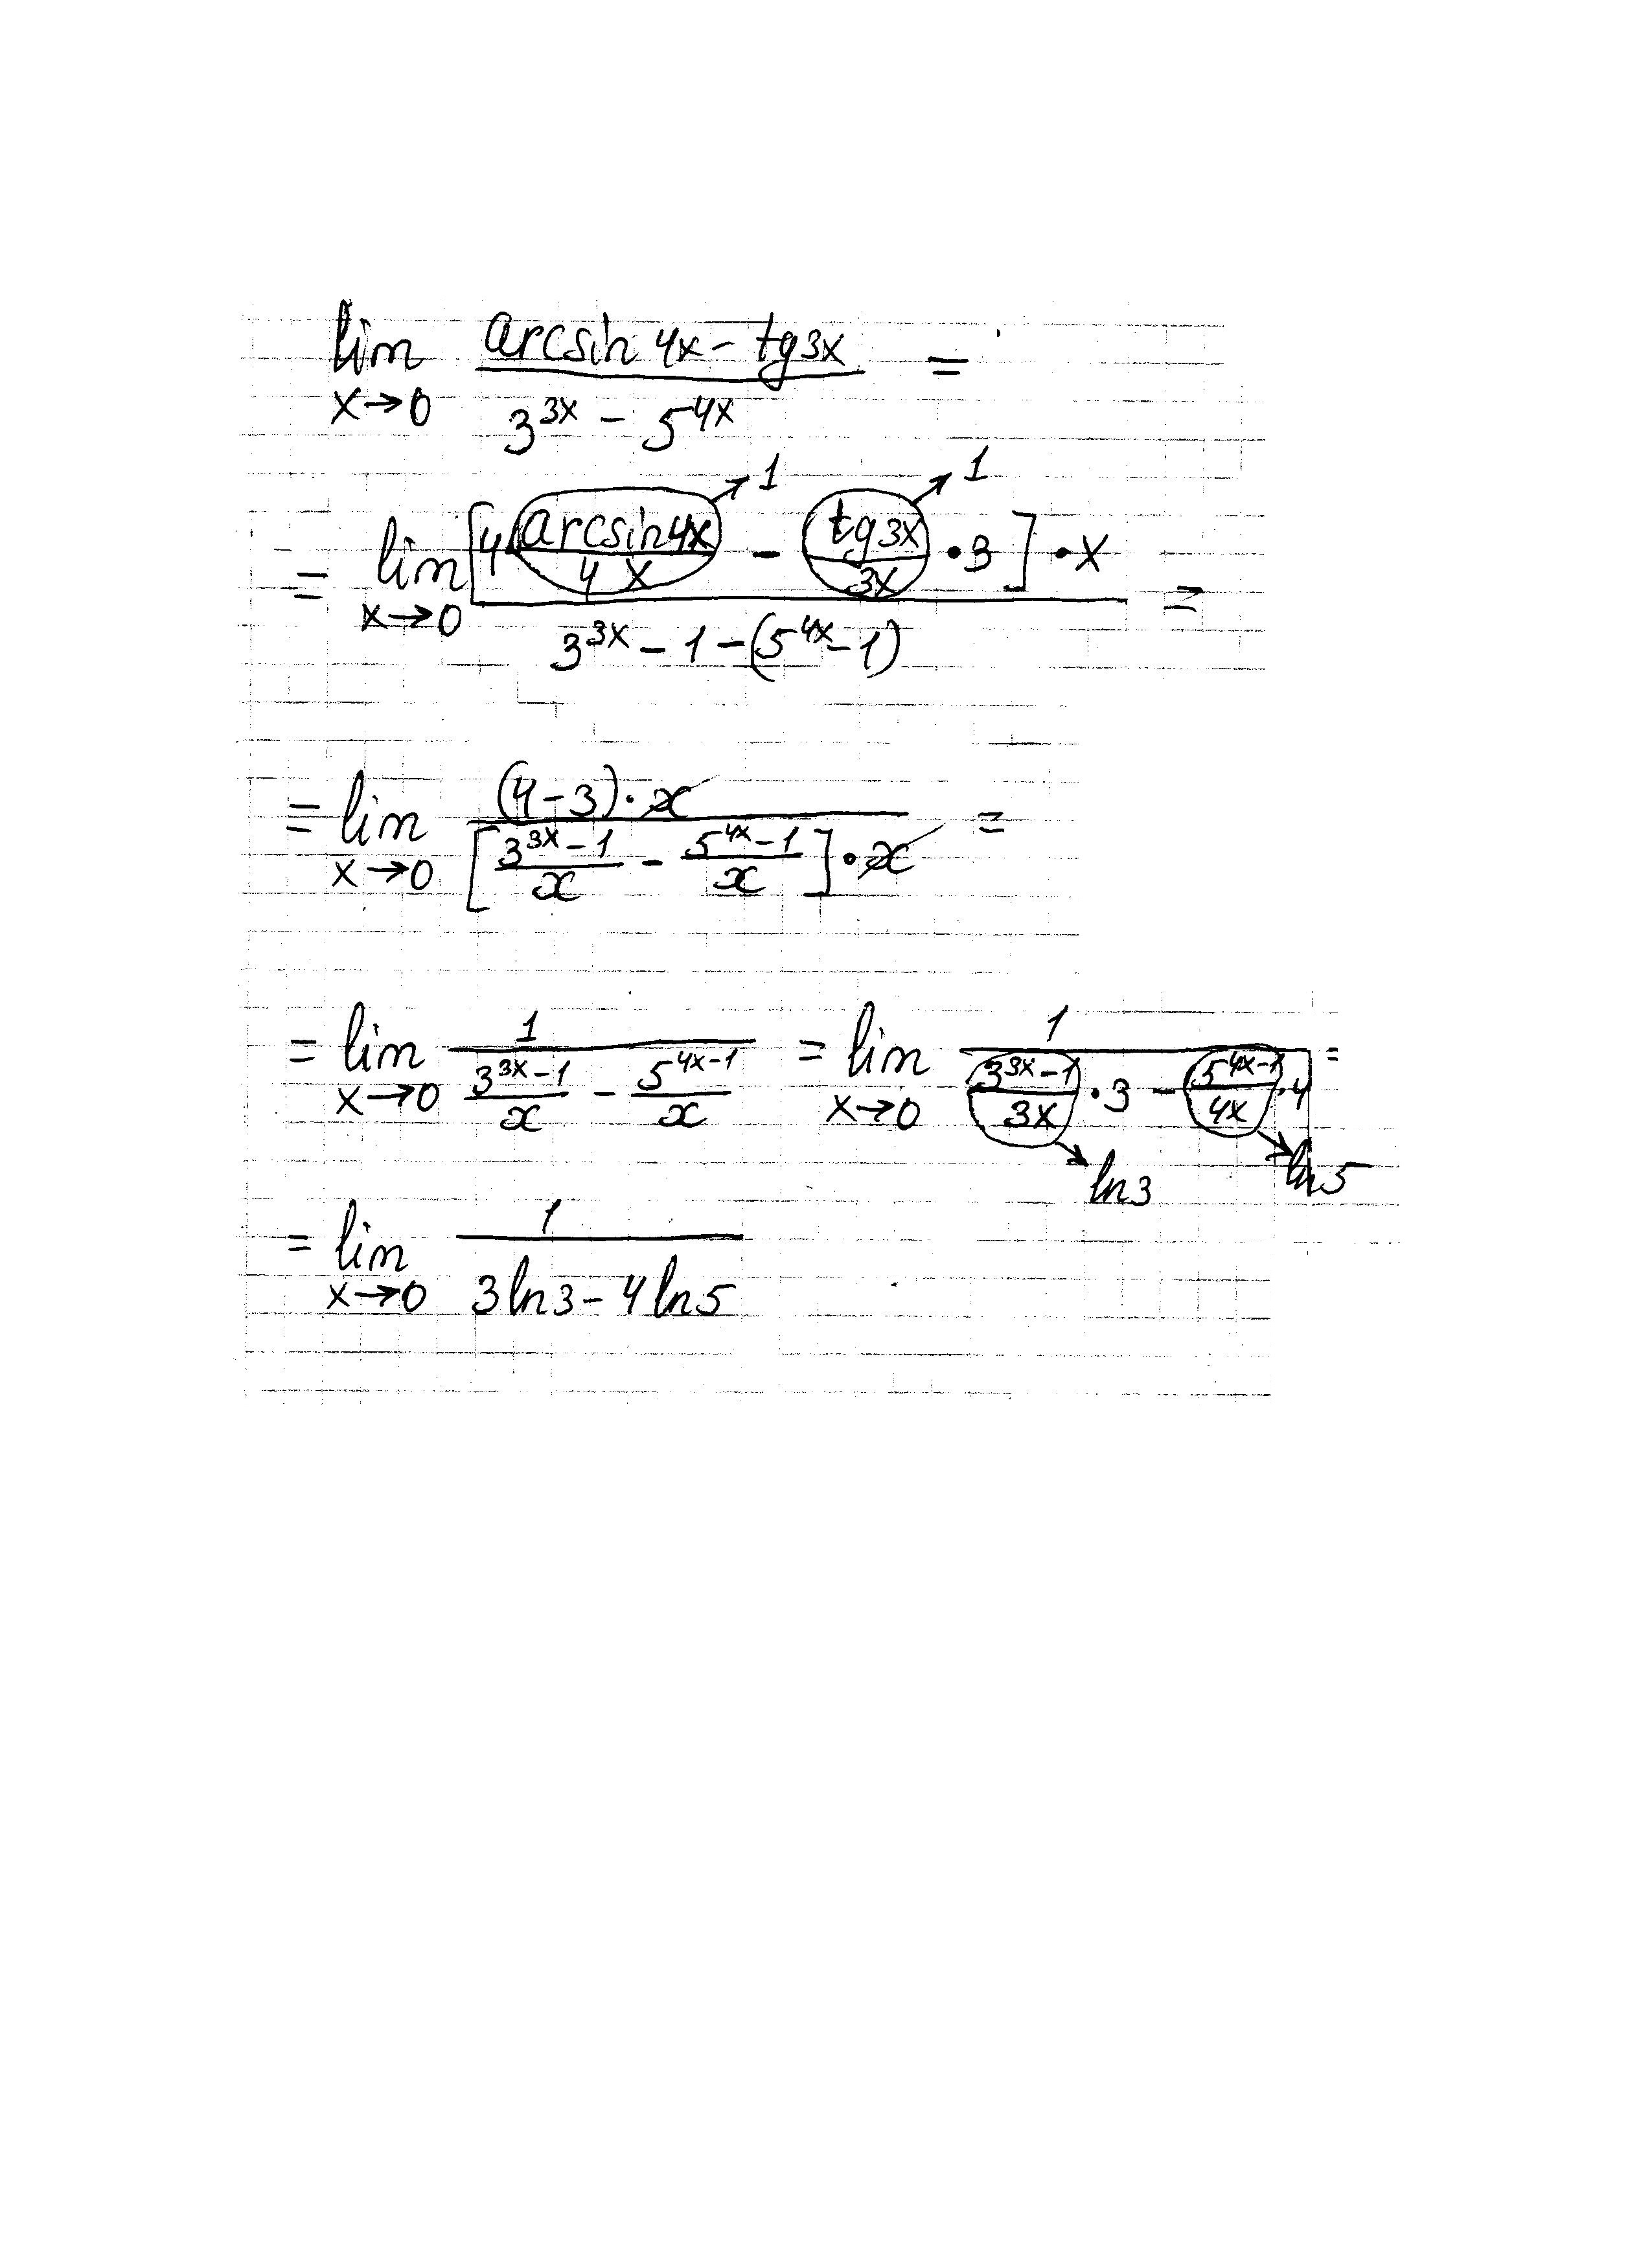 lim x→0 (arcsin 4x - tg3x) / (3^{3x} - 5^{4x}) =
= lim x→0 ([4 · (arcsin4x / 4x) → 1 - (tg3x / 3x) → 1 · 3] · x) / (3^{3x} - 1 - (5^{4x} - 1)) =
= lim x→0 ((4-3) · x) / ([(3^{3x} - 1) / x - (5^{4x} - 1) / x] · x) =
= lim x→0 1 / ((3^{3x} - 1) / x - (5^{4x} - 1) / x) = lim x→0 1 / ((3^{3x} - 1) / 3x → ln3 · 3 - (5^{4x} - 1) / 4x → ln5 · 4) =
= lim x→0 1 / (3ln3 - 4ln5)